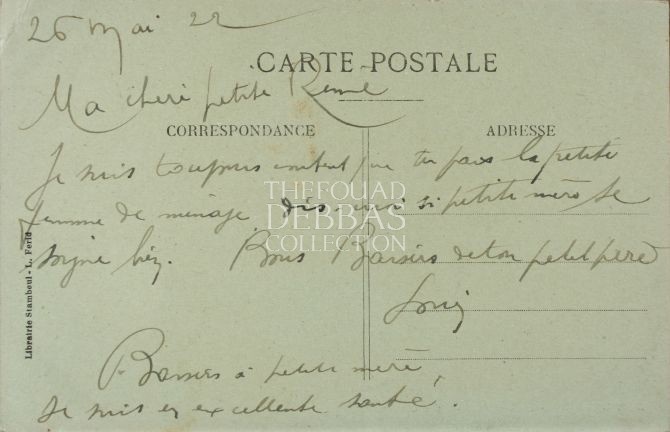 26 Mai 22
CARTE POSTALE
Ma cheri petite Reine
CORRESPONDANCE
ADRESSE
Je suis toujours content que tu fais la petite
femme de ménage, dis moi si petite mère se
soigne bien. Bons Baisers de ton petit père
Louis
Baisers à petite mère,
Je suis en excellente santé.
Librairie Stamboul - L. Ferid
THE FOUAD
DEBBAS
COLLECTION